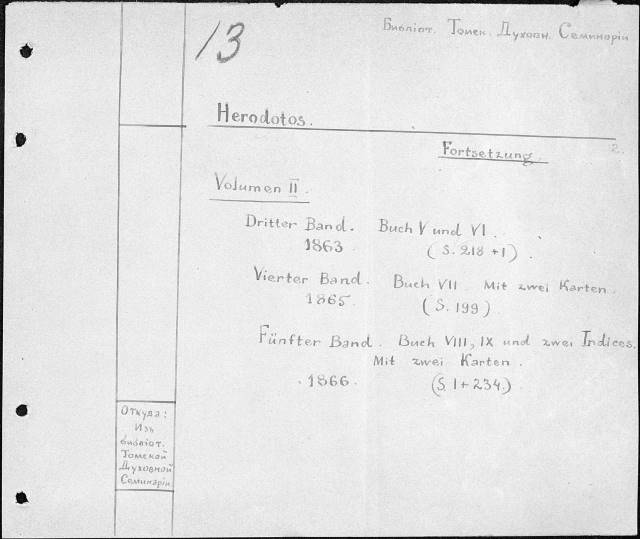 13
Библіот. Томск. Духовн. Семинаріи
Herodotos.
Fortsetzung.
2.
Volumen II.
Dritter Band. Buch V und VI.
1863 (S. 218 + 1).
Vierter Band. Buch VII. Mit zwei Karten.
1865. (S. 199)
Fünfter Band. Buch VIII, IX und zwei Indices.
Mit zwei Karten.
1866. (S. 1 + 234.)
Откуда:
Изъ
библіот.
Томской
Духовной
Семинаріи